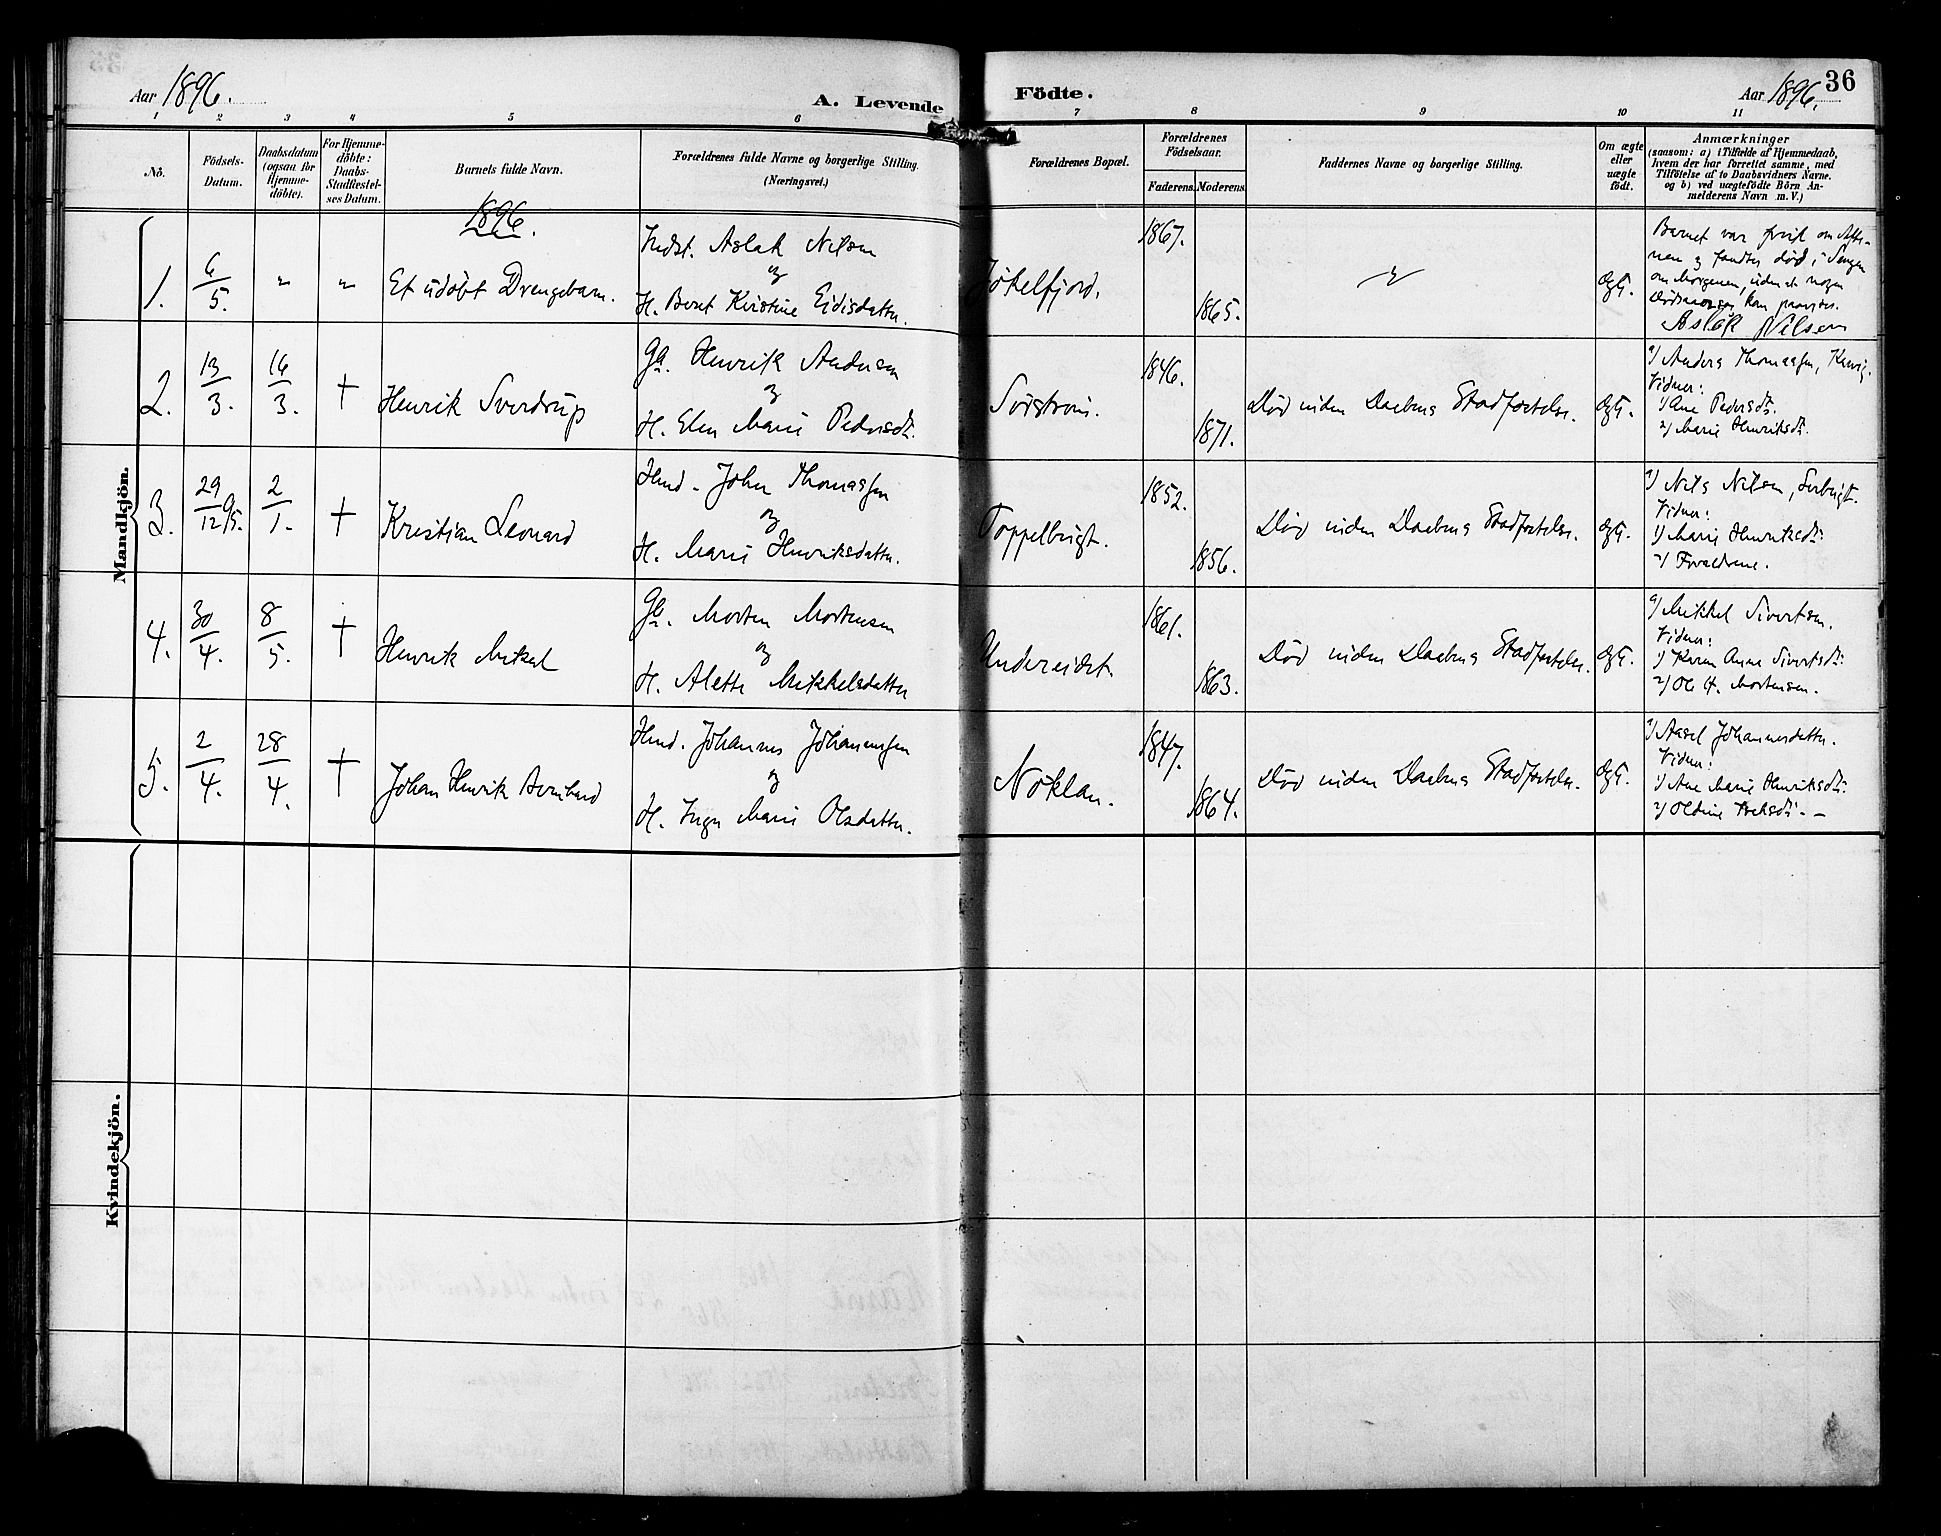 36
Aar 1896.
A. Levende
Födte.
Aar 1896.
1 2 3 4 5 6 7 8 9 10 11
Nö.
Födsels-
Datum.
Daabsdatum
(ogsaa for
Hjemme-
döbte).
For Hjemme-
döbte:
Daabs-
Stadfæstel-
ses Datum.
Barnets fulde Navn.
Forældrenes fulde Navne og borgerlige Stilling.
(Næringsvei.)
Forældrenes Bopæl.
Forældrenes
Födselsaar.
Faderens. Moderens.
Faddernes Navne og borgerlige Stilling.
Om ægte
eller
uægte
födt.
Anmærkninger
(saasom: a) i Tilfælde af Hjemmedaab,
hvem der har forrettet samme, med
Tilföielse af to Daabsvidners Navne.
og b) ved uægtefödte Börn An-
melderens Navn m. V.)
Mandkjön.
1896.
1.
6/5.
"
"
Et udöbt Drengebarn.
Indst. Aslak Nilsen
og
H. Beret Kristine Eidisdatter.
Jökelfjord.
1867.
1865.
"
ægt.
Barnet var frisk om Afte-
nen og fandtes död i Sengen
om Morgenen, uden at nogen
Dödsaarsag kan paavises.
Aslak Nilsen
2.
13/3.
16/3.
†
Henrik Sverdrup
Gg. Henrik Andersen
og
H. Elen Marie Pedersdt.
Sörström.
1846.
1871.
Död inden Daabens Stadfæstelse.
ægt.
a) Anders Thomassen,
Vidner:
1) Ane Pedersdt.
2) Marie Henriksdt.
3.
29/12 95.
2/1.
†
Kristian Leonard
Huusmd. John Thomassen
og
H. Marie Henriksdatter.
Toppelbugt.
1852.
1856.
Död inden Daabens Stadfæstelse.
ægt.
a) Nils Nilsen,
Vidner:
1) Marie Henriksdt.
2) Forældrene.
4.
30/4.
8/5.
†
Henrik Mikal
Gb. Morten Mortensen
og
H. Alette Mikkelsdatter
Undereidet.
1861.
1863.
Död inden Daabens Stadfæstelse.
ægt.
a) Mikkel Sivertsen.
Vidner:
1) Karen Anna Sivertsdt.
2) Ole H. Mortensen.
5.
2/4.
28/4.
†
Johan Henrik Arnthard
Huusmd. Johannes Johannessen
og
H. Inger Marie Olsdatter.
Nöklan.
1847.
1864.
Död inden Daabens Stadfæstelse.
ægt.
a) Aasel Johannesdatter.
Vidner:
1) Ane Marie Henriksdt.
2) Oldine
Kvindekjön.